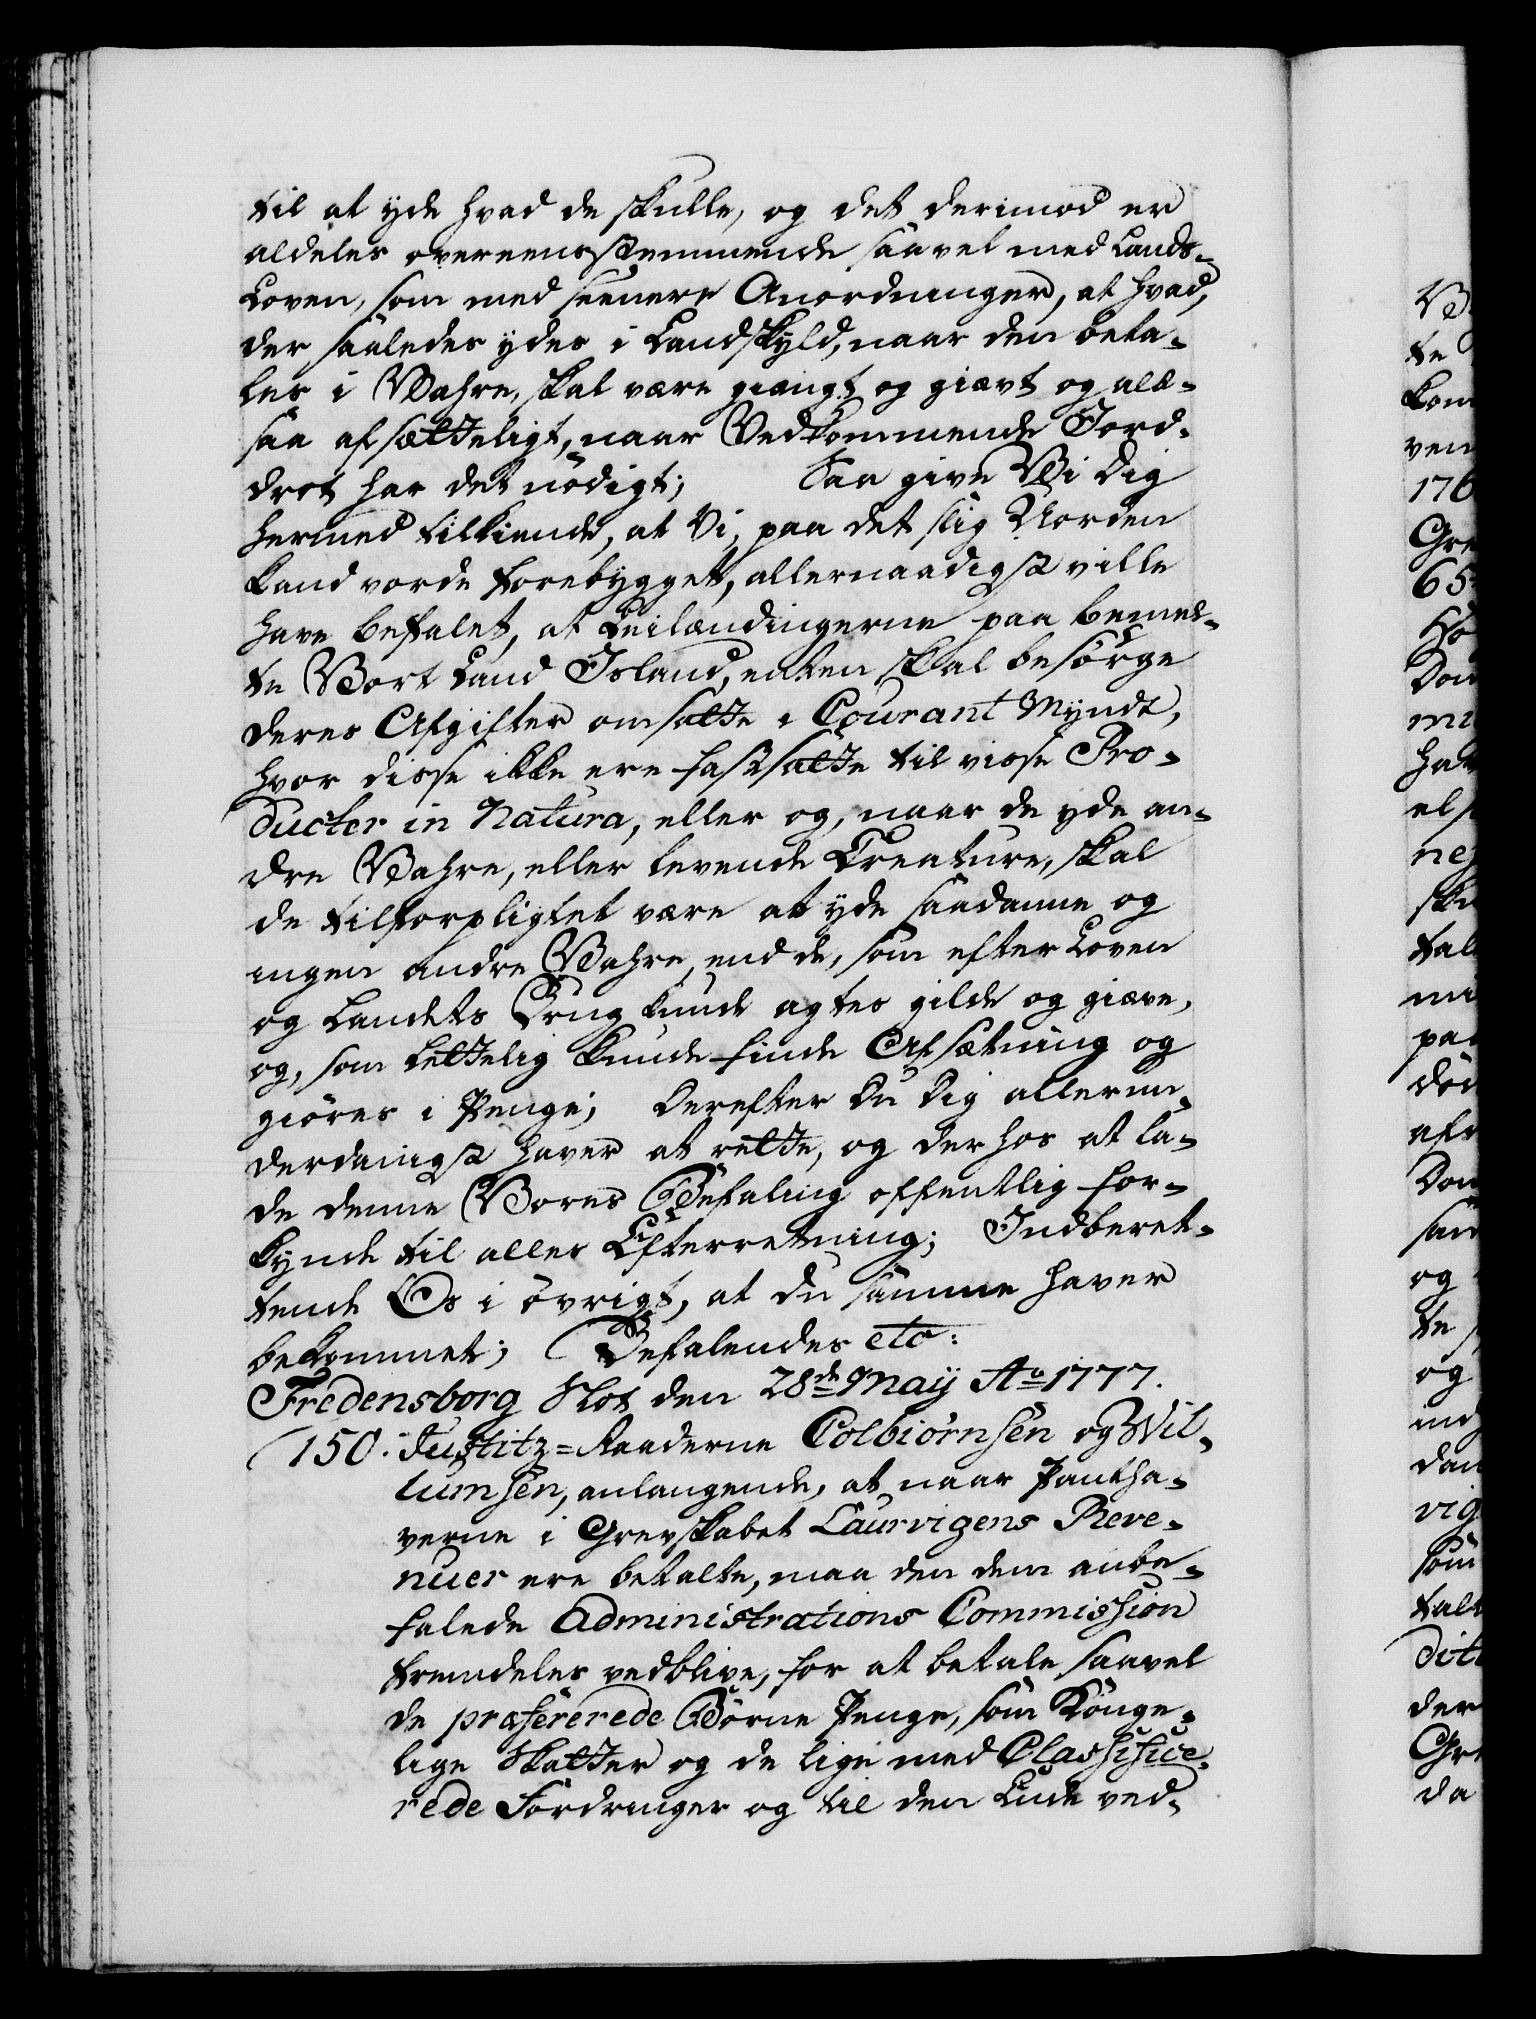 til at yde hvad de skulle, og det derimod er
aldeles overeensstemmende saavel med Lands-
Loven, som med seenere Anordninger, at hvad,
der saaledes ydes i Landskyld, naar den beta-
les i Vahre, skal være giængt og giævt og alt-
saa afsætteligt, naar Vedkommende Jord-
drot har det nödigt; Saa give Vi Dig
hermed tilkiende, at Vi, paa det slig Uorden
kand vorde forebygget, allernaadigst ville
have befalet, at Leilændingerne paa bemel-
te Vort Land Island, enten skal besörge
deres Afgifter omsatte i Courant Myndt,
hvor disse ikke ere fastsatte til visse Pro-
ducter in Natura, eller og, naar de yde an-
dre Vahre, eller levende Creature, skal
de tilforpligtet være at yde saadanne og
ingen andre Vahre, end de, som efter Loven
og Landets Brug kunde agtes gilde og giæve,
og, som lettelig kunde finde Afsætning og
giöres i Penge; Derefter Du Dig allerun-
derdanigst haver at rette, og derhos at la-
de denne Vores Befaling offentlig for-
kynde til alles Efterretning; Indberet-
tende Os i övrigt, at du samme haver
bekommet; Befalendes etc:
Fredensborg Slot den 28de May Ao 1777.
150. Justitz-Raaderne Colbiörnsen og Wil-
lumsen, anlangende, at naar Pantha-
verne i Grevskabet Laurvigens Reve-
nuer ere betalte, maa den dem anbe-
falede Administrations Commission
fremdeles vedblive, for at betale saavel
de præfererede Börne Penge, som Konge-
lige Skatter og de lige med Classifice-
rede Fordringer og til den Ende ved-